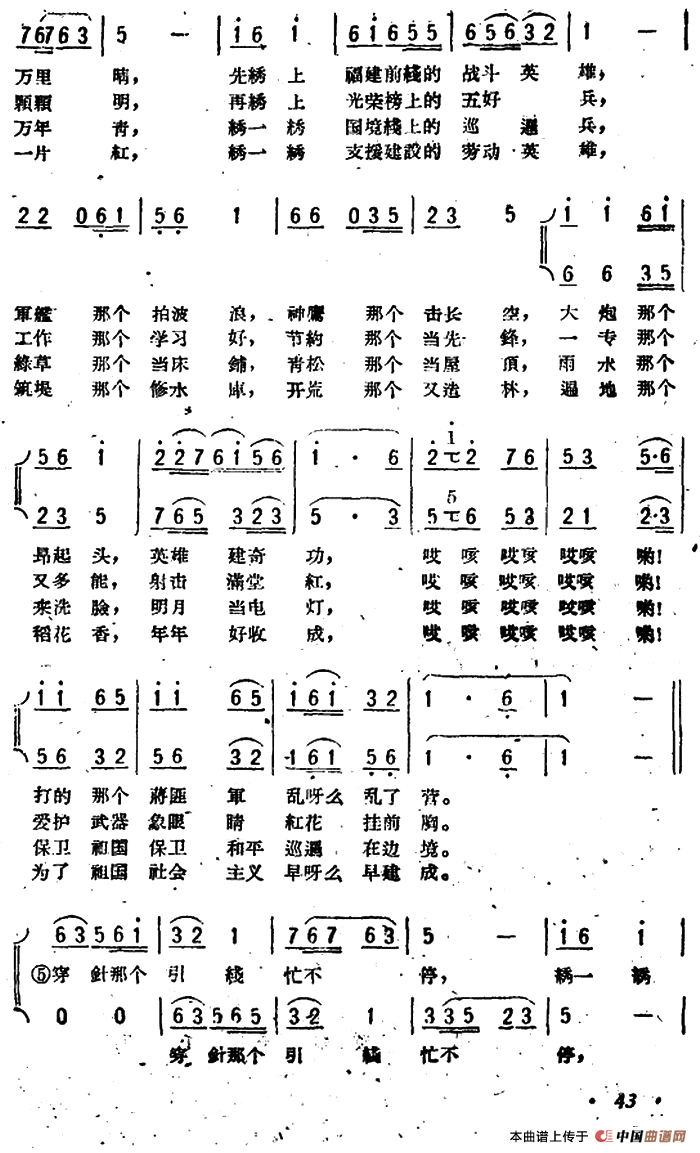 767763 | 5 — | i6 i | 6i655 | 65632 | 1 — |
万里 晴， 先綉上 福建前綫的 战斗英 雄，
顆顆 明， 再綉上 光荣榜上的 五好 兵，
万年 青， 綉一綉 国境綫上的 巡邏 兵，
一片 紅， 綉一綉 支援建設的 劳动英 雄，
22 061 | 56 1 | 66 035 | 23 5 | i i 6i
6 6 35
軍艦 那个 拍波 浪，神鷹 那个 击长 空，大 炮 那个
工作 那个 学习 好，节約 那个 当先 鋒，一 专 那个
綠草 那个 当床 鋪，青松 那个 当屋 頂，雨 水 那个
筑堤 那个 修水 庫，开荒 那个 又造 林，遍 地 那个
56 i | 2276i56 | i · 6 | 2 2 76 | 53 5·6
23 5 | 765 323 | 5 · 3 | 5 6 53 | 21 2·3
昂起 头，英雄 建奇 功， 哎 咳 哎咳 哎咳 喲！
又多 能，射击 滿堂 紅， 哎 咳 哎咳 哎咳 喲！
来洗 臉，明月 当电 灯， 哎 咳 哎咳 哎咳 喲！
稻花 香，年年 好收 成， 哎 咳 哎咳 哎咳 喲！
i i 65 | i i 65 | i6i 32 | 1 · 6 | 1 — ‖
56 32 | 56 32 | 161 56 | 1 · 6 | 1 — ‖
打的 那个 蔣匪 軍 乱呀么 乱了 营。
爱护 武器 象眼 睛 紅花 挂前 胸。
保卫 祖国 保卫 和平 巡邏 在边 境。
为了 祖国 社会 主义 早呀么 早建 成。
63 56i | 32 1 | 767 63 | 5 — | i6 i |
⑤穿 針那个 引 綫 忙不 停， 綉一 綉
0 0 | 63 565 | 32 1 | 335 23 | 5 — |
穿 針那个 引 綫 忙不 停，
· 43 ·
本曲谱上传于 中国曲谱网